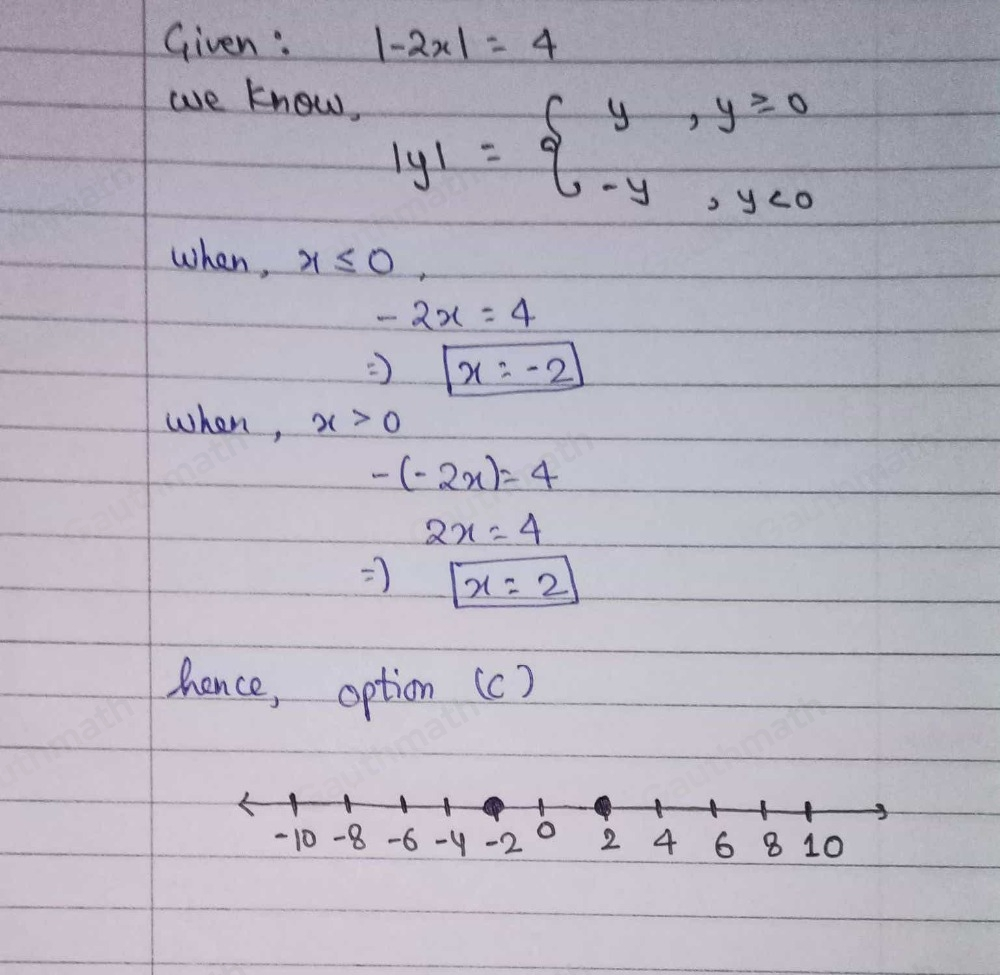 Given : |-2x| = 4
we know,
|y| = { y , y ≥ 0
-y , y < 0
when, x ≤ 0,
- 2x = 4
=) x = -2
when, x > 0
-(-2x) = 4
2x = 4
=) x = 2
hence, option (c)
-10 -8 -6 -4 -2 0 2 4 6 8 10
Gauthmath